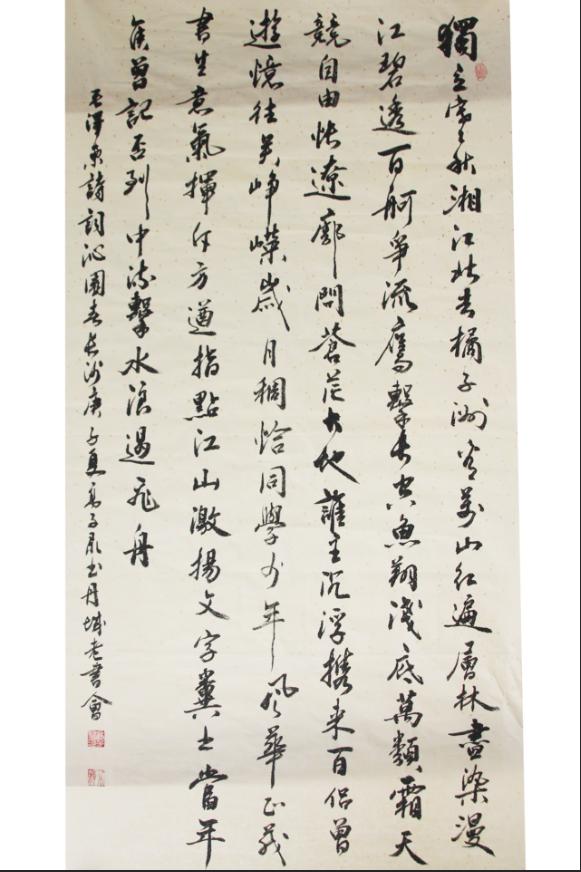 獨立寒秋湘江北去橘子洲看萬山紅遍層林盡染漫
江碧透百舸爭流鷹擊長空魚翔淺底萬類霜天
競自由悵遼廓問蒼茫大地誰主沉浮攜來百侶曾
遊憶往昔崢嶸歲月稠恰同學少年風華正茂
書生意氣揮斥方遒指點江山激揚文字糞土當年
侯曾記否到中流擊水浪遏飛舟
毛澤東詩詞沁園春長沙庚子夏高子書丹城老書會